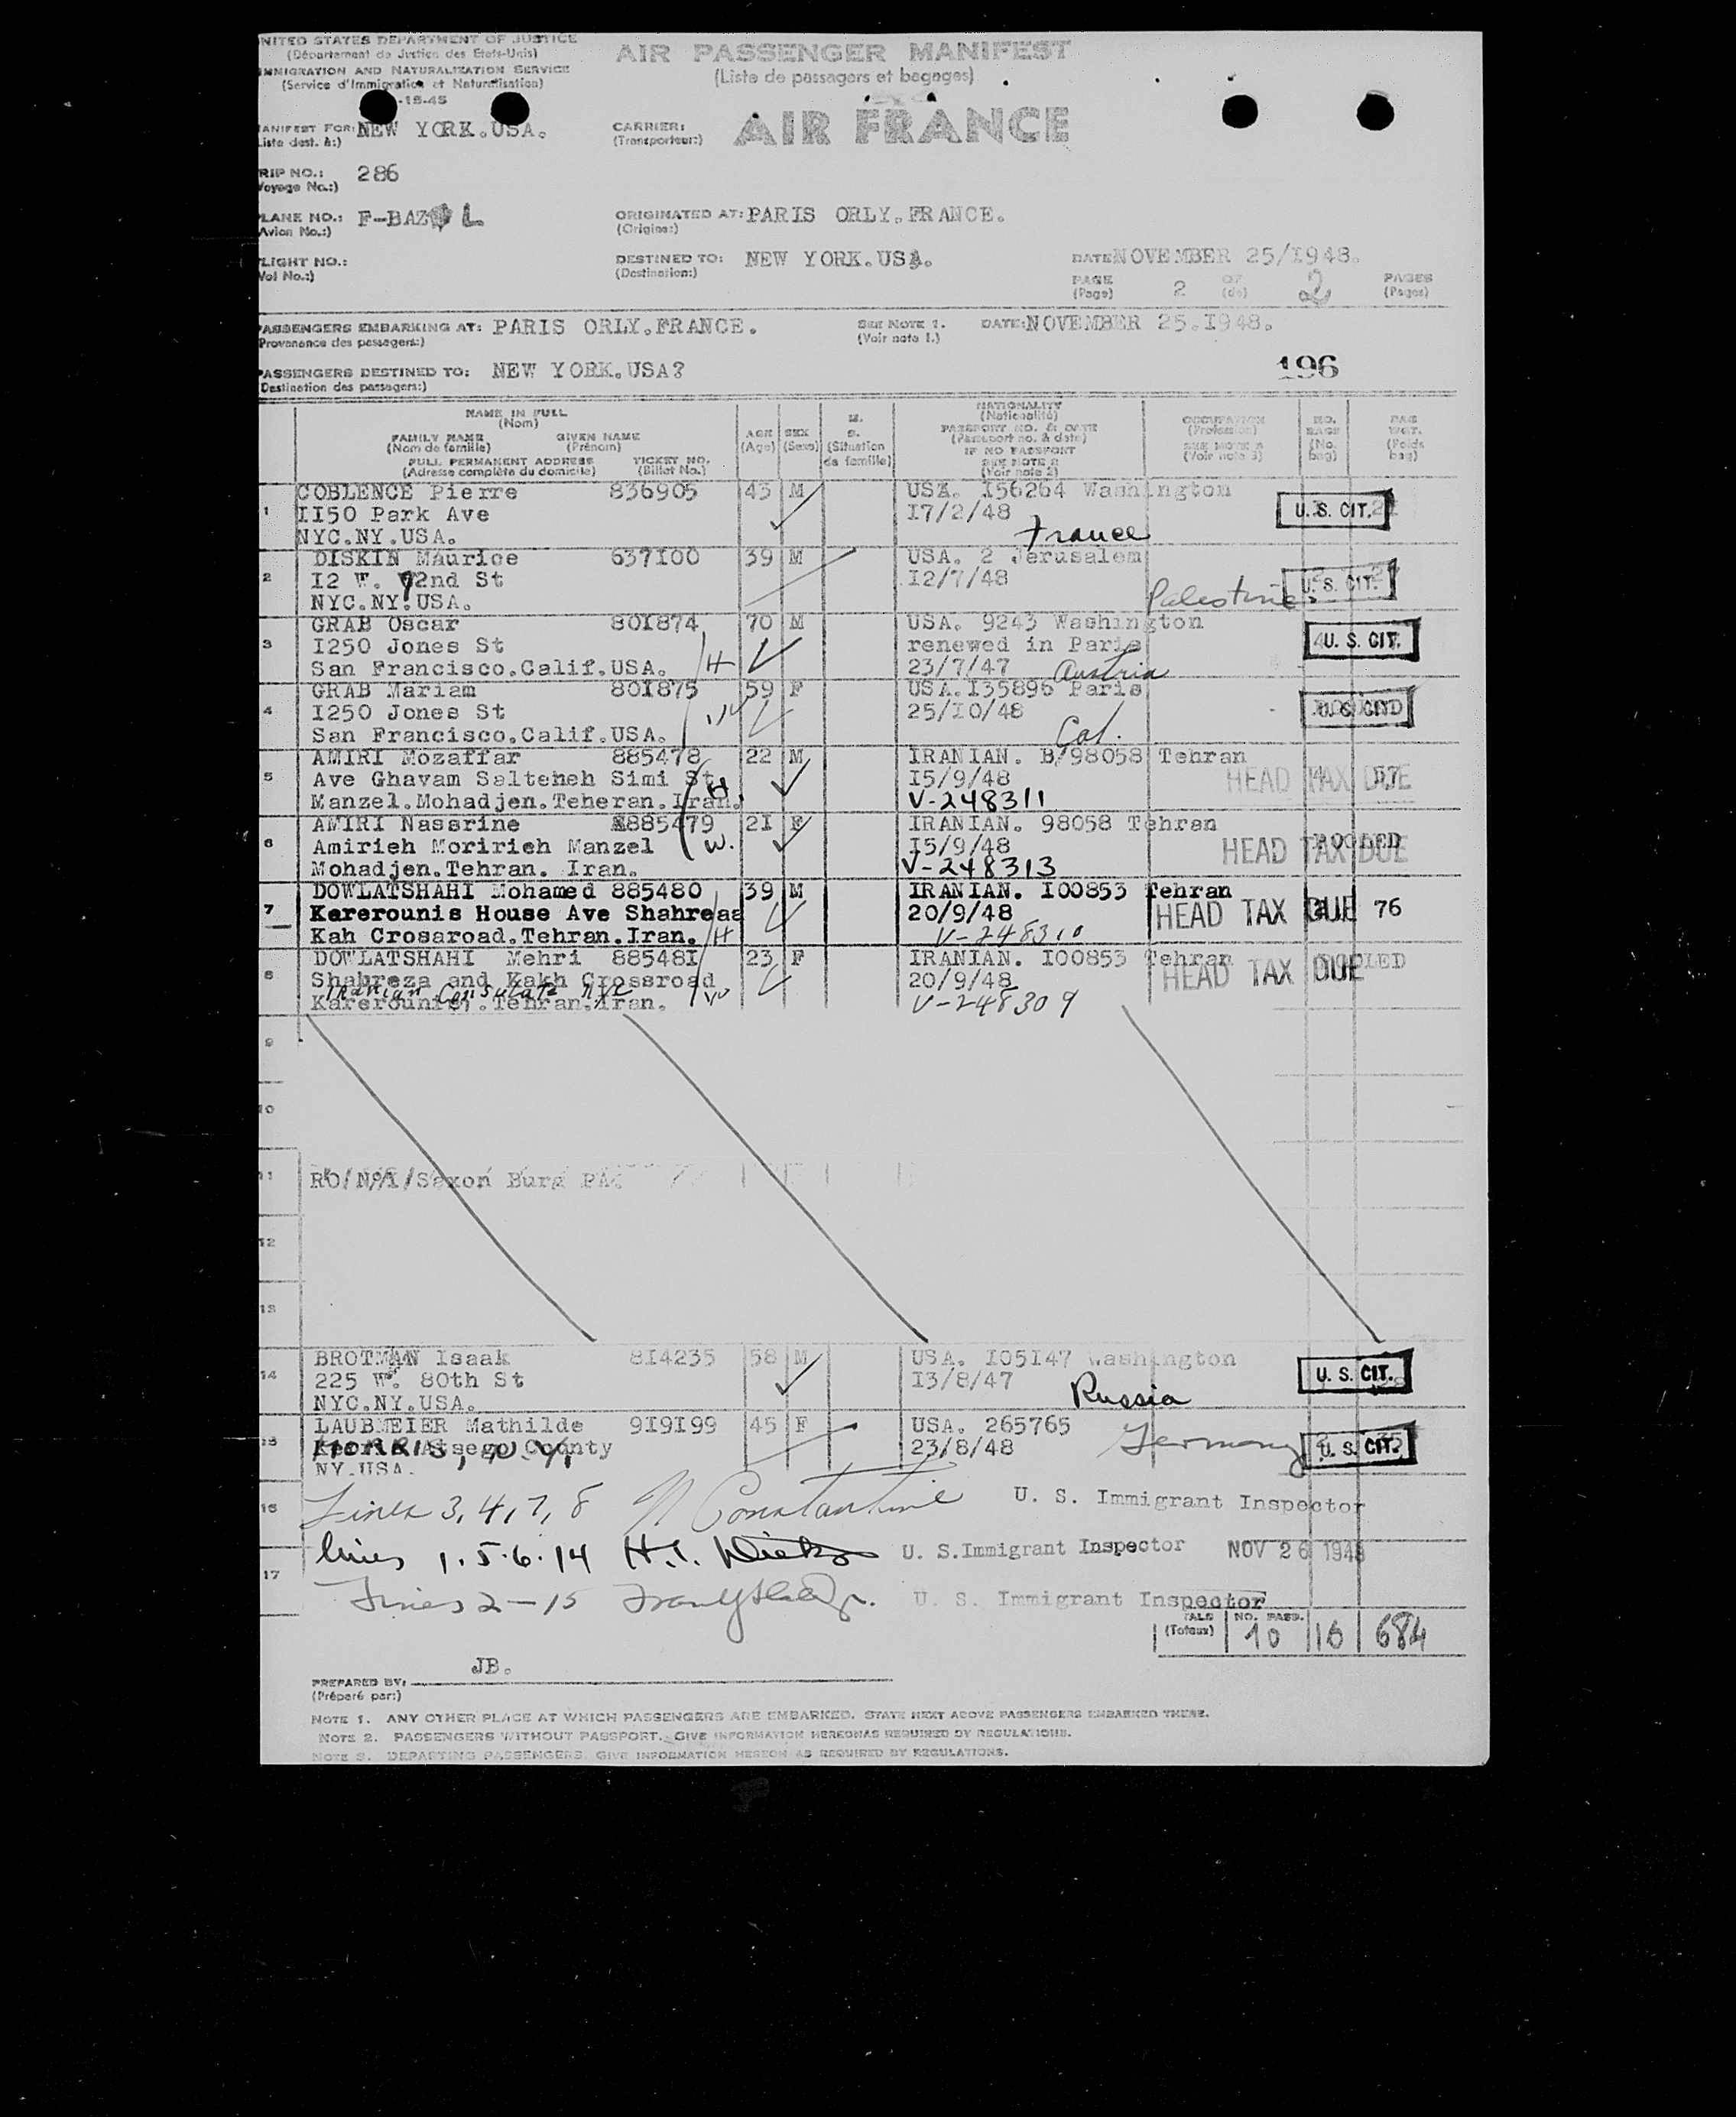 UNITED STATES DEPARTMENT OF JUSTICE
(Département de Justice des Etats-Unis)
IMMIGRATION AND NATURALIZATION SERVICE
(Service d'Immigration et Naturalisation)
-15-45
AIR PASSENGER MANIFEST
(Liste de passagers et bagages)
MANIFEST FOR: NEW YORK.USA.
Liste dest. à:)
CARRIER: AIR FRANCE
(Transporteur:)
TRIP NO.: 286
Voyage No.:)
PLANE NO.: F-BAZ L
Avion No.:)
ORIGINATED AT: PARIS ORLY.FRANCE.
(Origine:)
FLIGHT NO.:
Vol No.:)
DESTINED TO: NEW YORK.USA.
(Destination:)
DATE NOVEMBER 25/I948.
PAGE 2 OF 2 PAGES
(Page) (de) (Pages)
PASSENGERS EMBARKING AT: PARIS ORLY.FRANCE. SEE NOTE 1. DATE: NOVEMBER 25.I948.
Provenance des passagers:) (Voir note 1.)
PASSENGERS DESTINED TO: NEW YORK.USA?
(Destination des passagers:)
196
NAME IN FULL
(Nom)
FAMILY NAME GIVEN NAME
(Nom de famille) (Prénom)
FULL PERMANENT ADDRESS TICKET NO.
(Adresse complète du domicile) (Billet No.)
AGE
(Age)
SEX
(Sexe)
M.
S.
(Situation
de famille)
NATIONALITY
(Nationalité)
PASSPORT NO. & DATE
(Passeport no. & date)
IF NO PASSPORT
SEE NOTE 2
(Voir note 2)
OCCUPATION
(Profession)
SEE NOTE 3
(Voir note 3)
NO.
BAGS
(No.
bag)
BAG
WGT.
(Poids
bag)
1 COBLENCE Pierre 836905 43 M USA. I56264 Washington
II50 Park Ave I7/2/48 U. S. CIT.
NYC.NY.USA. France
DISKIN Maurice 637I00 39 M USA. 2 Jerusalem
2 I2 W. 72nd St I2/7/48 U. S. CIT.
NYC.NY.USA. Palestine
GRAB Oscar 80I874 70 M USA. 9243 Washington
3 I250 Jones St renewed in Paris U. S. CIT.
San Francisco.Calif.USA. H 23/7/47 Austria
GRAB Mariam 80I875 59 F USA.I35896 Paris
4 I250 Jones St W 25/I0/48 U.S. CIT
San Francisco.Calif.USA. Cal.
AMIRI Mozaffar 885478 22 M IRANIAN. B/98058 Tehran
5 Ave Ghavam Salteneh Simi St I5/9/48 HEAD TAX DUE
Manzel.Mohadjen.Teheran.Iran. H V-248311
AMIRI Nassrine 885479 2I F IRANIAN. 98058 Tehran
6 Amirieh Moririeh Manzel W. I5/9/48 HEAD TAX DUE
Mohadjen.Tehran. Iran. V-248313
DOWLATSHAHI Mohamed 885480 39 M IRANIAN. I00853 Tehran
7 Kererounis House Ave Shahreaa 20/9/48 HEAD TAX DUE 76
Kah Crosaroad.Tehran.Iran. H V-248310
DOWLATSHAHI Mehri 88548I 23 F IRANIAN. I00853 Tehran
8 Shahreza and Kakh Crossroad 20/9/48 HEAD TAX DUE
Iranian Consulate NYC
Karerounis. Tehran.Iran. W V-248309
9
10
11 RO/N/A/Saxon Burg PA
12
13
BROTMAN Isaak 8I4235 58 M USA. I05I47 Washington
14 225 W. 80th St I3/8/47 U. S. CIT.
NYC.NY.USA. Russia
LAUBMEIER Mathilde 9I9I99 45 F USA. 265765
15 MORRIS, N.Y. Atsego County 23/8/48 Germany U. S. CIT.
NY.USA.
16 Lines 3, 4, 7, 8 N Constantine U. S. Immigrant Inspector
lines 1.5.6.14 H.I. U. S.Immigrant Inspector NOV 26 1948
17
Lines 2-15 U. S. Immigrant Inspector
TALS NO. PASS.
(Totaux) 10 16 684
JB.
PREPARED BY:
(Préparé par:)
NOTE 1. ANY OTHER PLACE AT WHICH PASSENGERS ARE EMBARKED. STATE NEXT ABOVE PASSENGERS EMBARKED THERE.
NOTE 2. PASSENGERS WITHOUT PASSPORT. GIVE INFORMATION HEREONAS REQUIRED BY REGULATIONS.
NOTE 3. DEPARTING PASSENGERS. GIVE INFORMATION HEREON AS REQUIRED BY REGULATIONS.